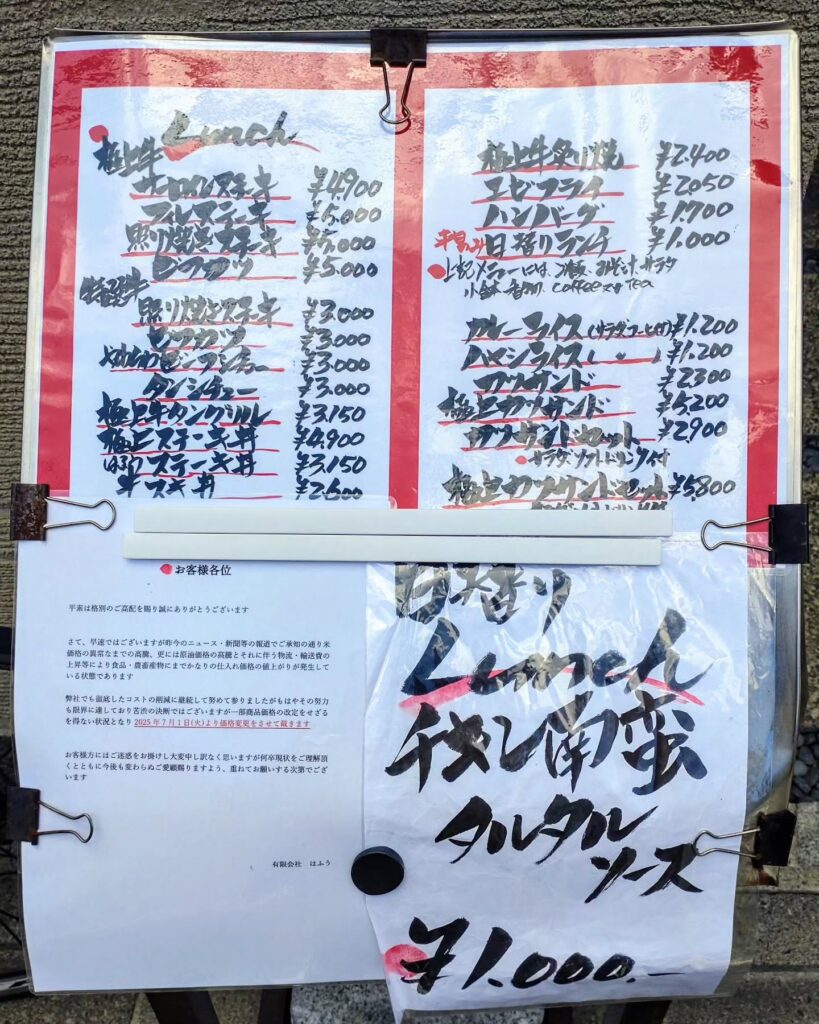 Lunch
極上牛
サーロインステーキ ¥4,900
フィレステーキ ¥5,000
照り焼きステーキ ¥5,000
ビフカツ ¥5,000
特選牛
照り焼きステーキ ¥3,000
ビフカツ ¥3,000
ビーフシチュー ¥3,000
タンシチュー ¥3,000
極上牛タングリル ¥3,150
極上ステーキ丼 ¥4,900
はふうステーキ丼 ¥3,150
牛スキ丼 ¥2,600
極上牛炙り焼 ¥2,400
エビフライ ¥2,050
ハンバーグ ¥1,700
平日のみ 日替りランチ ¥1,000
上記メニューには、御飯、みそ汁、サラダ
小鉢・香物、coffee又はTea
カレーライス(サラダ・コーヒー付) ¥1,200
ハヤシライス( 〃 ) ¥1,200
カツサンド ¥2,300
極上カツサンド ¥5,200
カツサンドセット ¥2,900
サラダ、ソフトドリンク付
極上カツサンドセット ¥5,800
お客様各位
平素は格別のご高配を賜り誠にありがとうございます
さて、早速ではございますが昨今のニュース・新聞等の報道でご承知の通り米
価格の異常なまでの高騰、更には原油価格の高騰とそれに伴う物流・輸送費の
上昇等により食品・農畜産物にまでかなりの仕入れ価格の値上がりが発生して
いる状態であります
弊社でも徹底したコストの削減に継続して努めて参りましたがもはやその努力
も限界に達しており苦渋の決断ではございますが一部商品価格の改定をせざる
を得ない状況となり 2025年7月1日(火)より価格変更をさせて戴きます
お客様方にはご迷惑をお掛けし大変申し訳なく思いますが何卒現状をご理解頂
くとともに今後も変わらぬご愛顧賜りますよう、重ねてお願いする次第でござ
います
有限会社 はふう
日替り
Lunch
チキン南蛮
タルタル
ソース
¥1,000.-